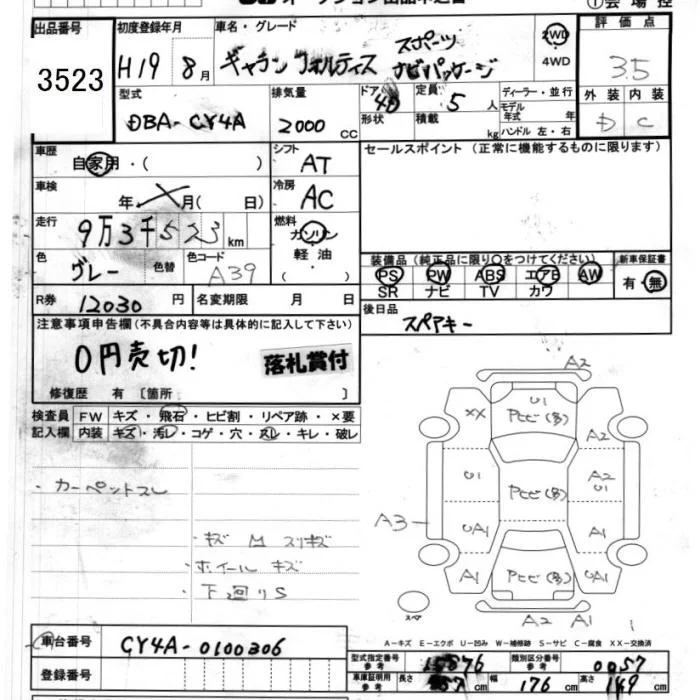 ①会場控
出品番号 初度登録年月 車名・グレード 評価点
3523 H19 8月 ギャラン フォルティス スポーツ ナビパッケージ 2WD 4WD 3.5
型式 排気量 ドア 4D 定員 5人 ディーラー・並行 外装 内装
DBA-CY4A 2000 cc 形状 積載 kg モデル年式 年式 ハンドル 左・右 D C
車歴 自家用・( ) シフト AT セールスポイント (正常に機能するものに限ります)
車検 年 月( 日) 冷房 AC
走行 9万3千523km 燃料 ガソリン 軽油 ・( )
色 グレー 色替 色コード A39
装備品 (純正品に限り○をつけてください) 新車保証書
PS PW ABS エアB AW 有・無
SR ナビ TV カワ
R券 12030円 名変期限 月 日
後日品 スペアキー
注意事項申告欄 (不具合内容等は具体的に記入して下さい)
0円売切!
落札賞付
修復歴 有 〔箇所 〕
検査員 FW キズ・飛石・ヒビ割・リペア跡・×要
記入欄 内装 キズ・汚レ・コゲ・穴・スレ・キレ・破レ
・カーペットスレ
・キズ M スリキズ
・ホイールキズ
・下回りS
A2
XX U1 Pヒビ(多) A2
U1 Pヒビ(多) A2 U1
A3 UA1 A1
A1 Pヒビ(多) UA1
スペア A2 A1
A-キズ E-エクボ U-凹み W-補修跡 S-サビ C-腐食 XX-交換済
車台番号 CY4A-0100306
登録番号
型式指定番号 参考 15876 類別区分番号 参考 0057
車庫証明用 参考 長さ 57cm 幅 176cm 高さ 149cm